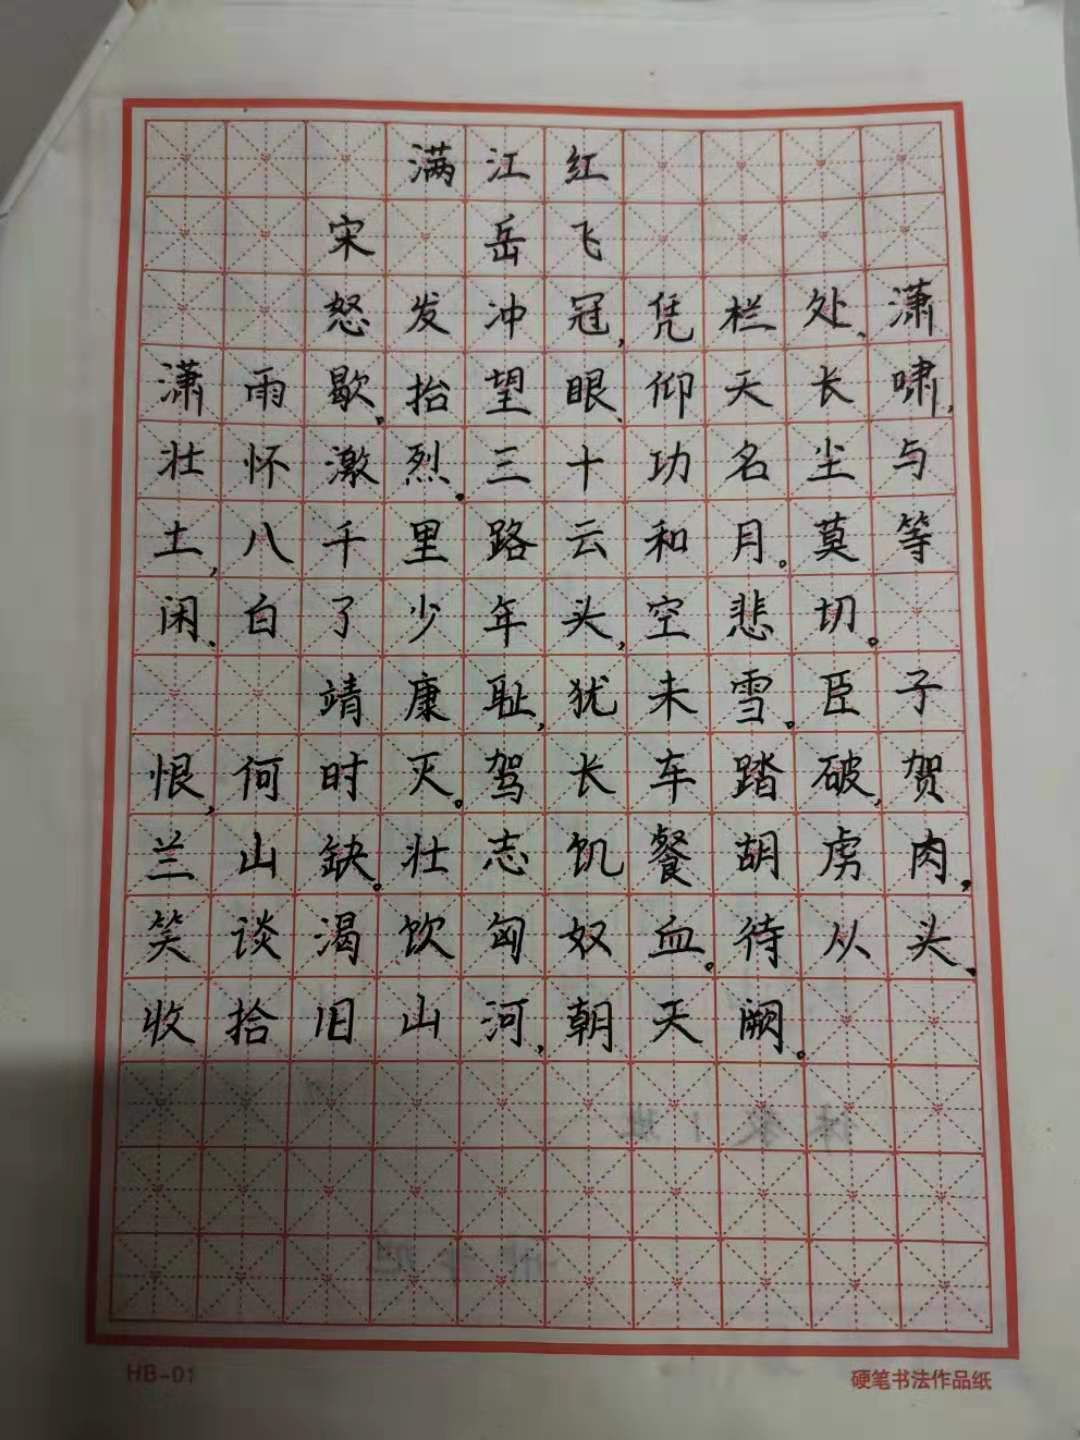 满江红
宋 岳飞
怒发冲冠,凭栏处、潇
潇雨歇。抬望眼、仰天长啸,
壮怀激烈。三十功名尘与
土,八千里路云和月。莫等
闲、白了少年头,空悲切。
靖康耻,犹未雪。臣子
恨,何时灭。驾长车踏破,贺
兰山缺。壮志饥餐胡虏肉,
笑谈渴饮匈奴血。待从头、
收拾旧山河,朝天阙。
HB-01
硬笔书法作品纸